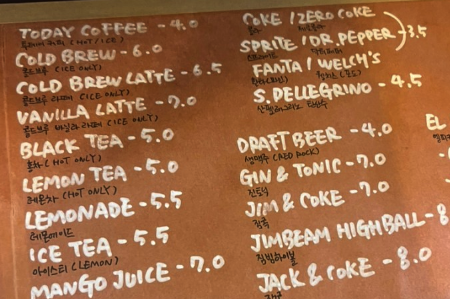 TODAY COFFEE - 4.0
투데이 커피 (HOT/ICE)
COLD BREW - 6.0
콜드브루 (ICE ONLY)
COLD BREW LATTE - 6.5
콜드브루 라떼 (ICE ONLY)
VANILLA LATTE - 7.0
콜드브루 바닐라 라떼 (ICE ONLY)
BLACK TEA - 5.0
홍차 (HOT ONLY)
LEMON TEA - 5.0
레몬차 (HOT ONLY)
LEMONADE - 5.5
레몬에이드
ICE TEA - 5.5
아이스티 (LEMON)
MANGO JUICE - 7.0
COKE / ZERO COKE
SPRITE / DR. PEPPER 3.5
스프라이트 닥터페퍼
FANTA / WELCH'S
S. PELLEGRINO - 4.5
산펠레그리노 탄산수
DRAFT BEER - 4.0
생맥주 (RED ROCK)
GIN & TONIC - 7.0
진토닉
JIM & COKE - 7.0
짐콕
JIMBEAM HIGHBALL - 8
짐빔하이볼
JACK & COKE - 8.0
잭콕
EL